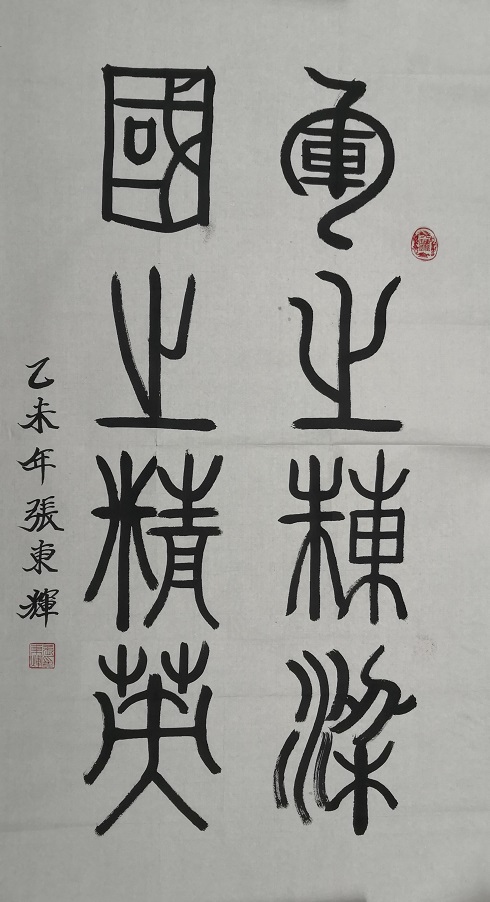 軍之棟梁
國之精英
乙未年張東輝